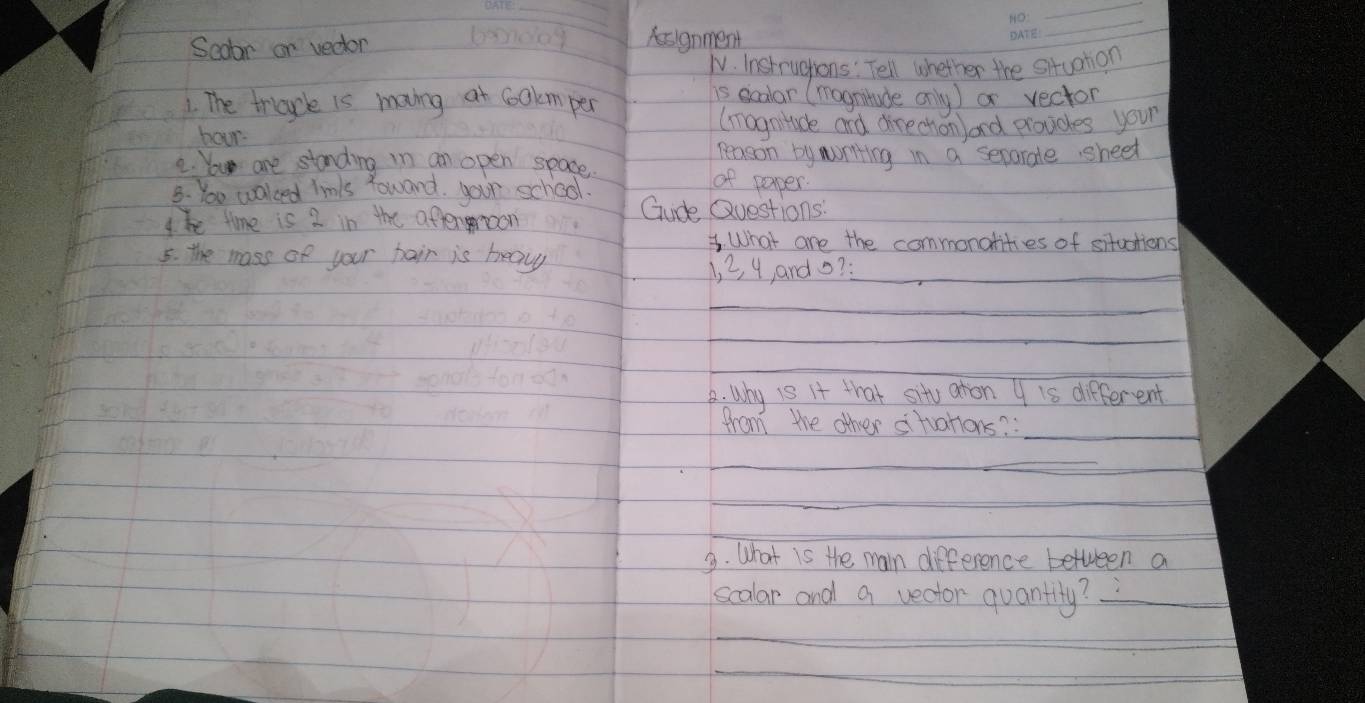 DATE:
Scalar or vector
1. The tricycle is moving at 60km per
hour.
2. You are standing in an open space.
3. You walced 1m/s toward. your school.
4. The time is 2 in the afternoon
5. The mass of your hair is heavy
NO:
DATE:
Assignment
IV. Instructions: Tell whether the situation
is scalar (magnitude only) or vector
(magnitude and direction) and provides your
reason by writing in a separate sheet
of paper.
Guide Questions:
1. What are the commonalities of situations
1, 2, 4, and 5?:
2. Why is it that situation 4 is different
from the other situations?:
3. What is the main difference between a
scalar and a vector quantity? :